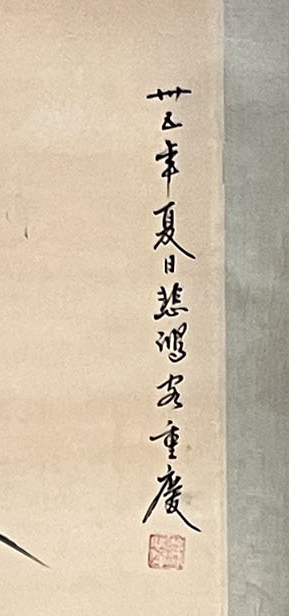 卅五年夏日悲鴻客重慶